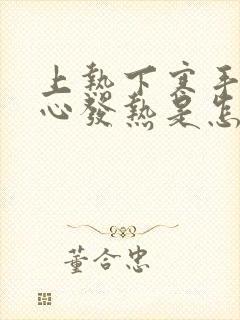 上熱下寒手
心發熱是怎
董合忠